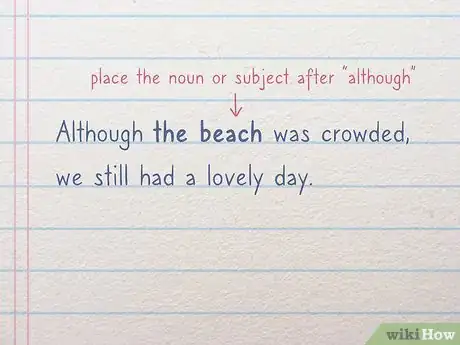 place the noun or subject after "although"
Although the beach was crowded,
we still had a lovely day.
wikiHow